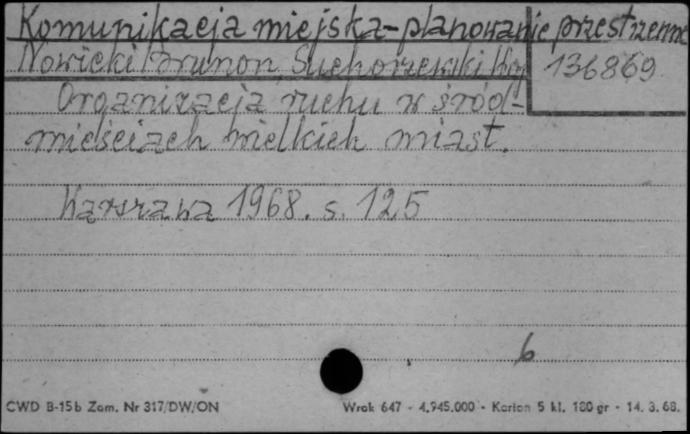 Komunikacja miejska-planowanie przestrzenne
Nowicki Brunon, Suchorzewski Woj
136869
Organizacja ruchu w śród-
mieściach wielkich miast.
Warszawa 1968. s. 125
6
CWD B-15b Zam. Nr 317/DW/ON
Wrok 647 - 4.945.000 - Karton 5 kl. 180 gr - 14. 3. 68.